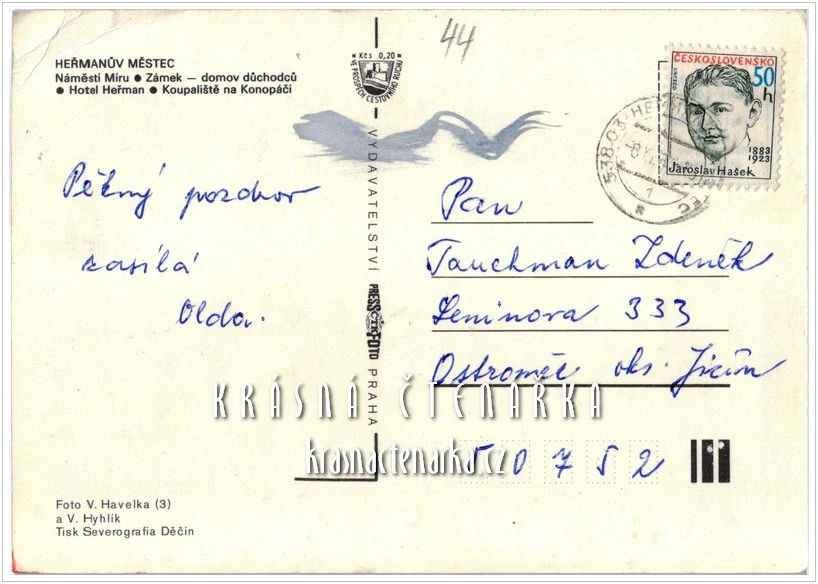 44
HEŘMANŮV MĚSTEC
Náměstí Míru ● Zámek — domov důchodců
● Hotel Heřman ● Koupaliště na Konopáči
Kčs 0,20
VE PROSPĚCH CESTOVNÍHO RUCHU
ČESKOSLOVENSKO
50 h
UNESCO
1883
1923
Jaroslav Hašek
538 03 HEŘM
Pěkný pozdrav
zasílá
Olda.
VYDAVATELSTVÍ PRESSFOTO PRAHA
ČTK
Pan
Tauchman Zdeněk
Leninova 333
Ostroměř okr. Jičín
50752
KRÁSNÁ ČTENÁŘKA
krasnactenarka.cz
Foto V. Havelka (3)
a V. Hyhlík
Tisk Severografia Děčín